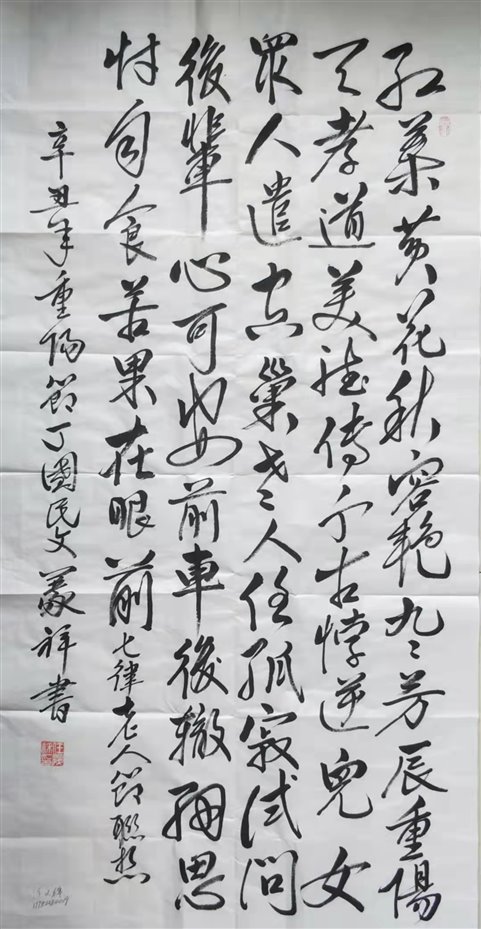 红葉黄花秋容艳九九芳辰重陽
天孝道美德傳千古悖逆兒女
眾人遣空巢老人任孤寂試問
後輩心可安前車後轍細思
忖自食苦果在眼前七律老人節聯想
辛丑年重陽節丁國民文義祥書